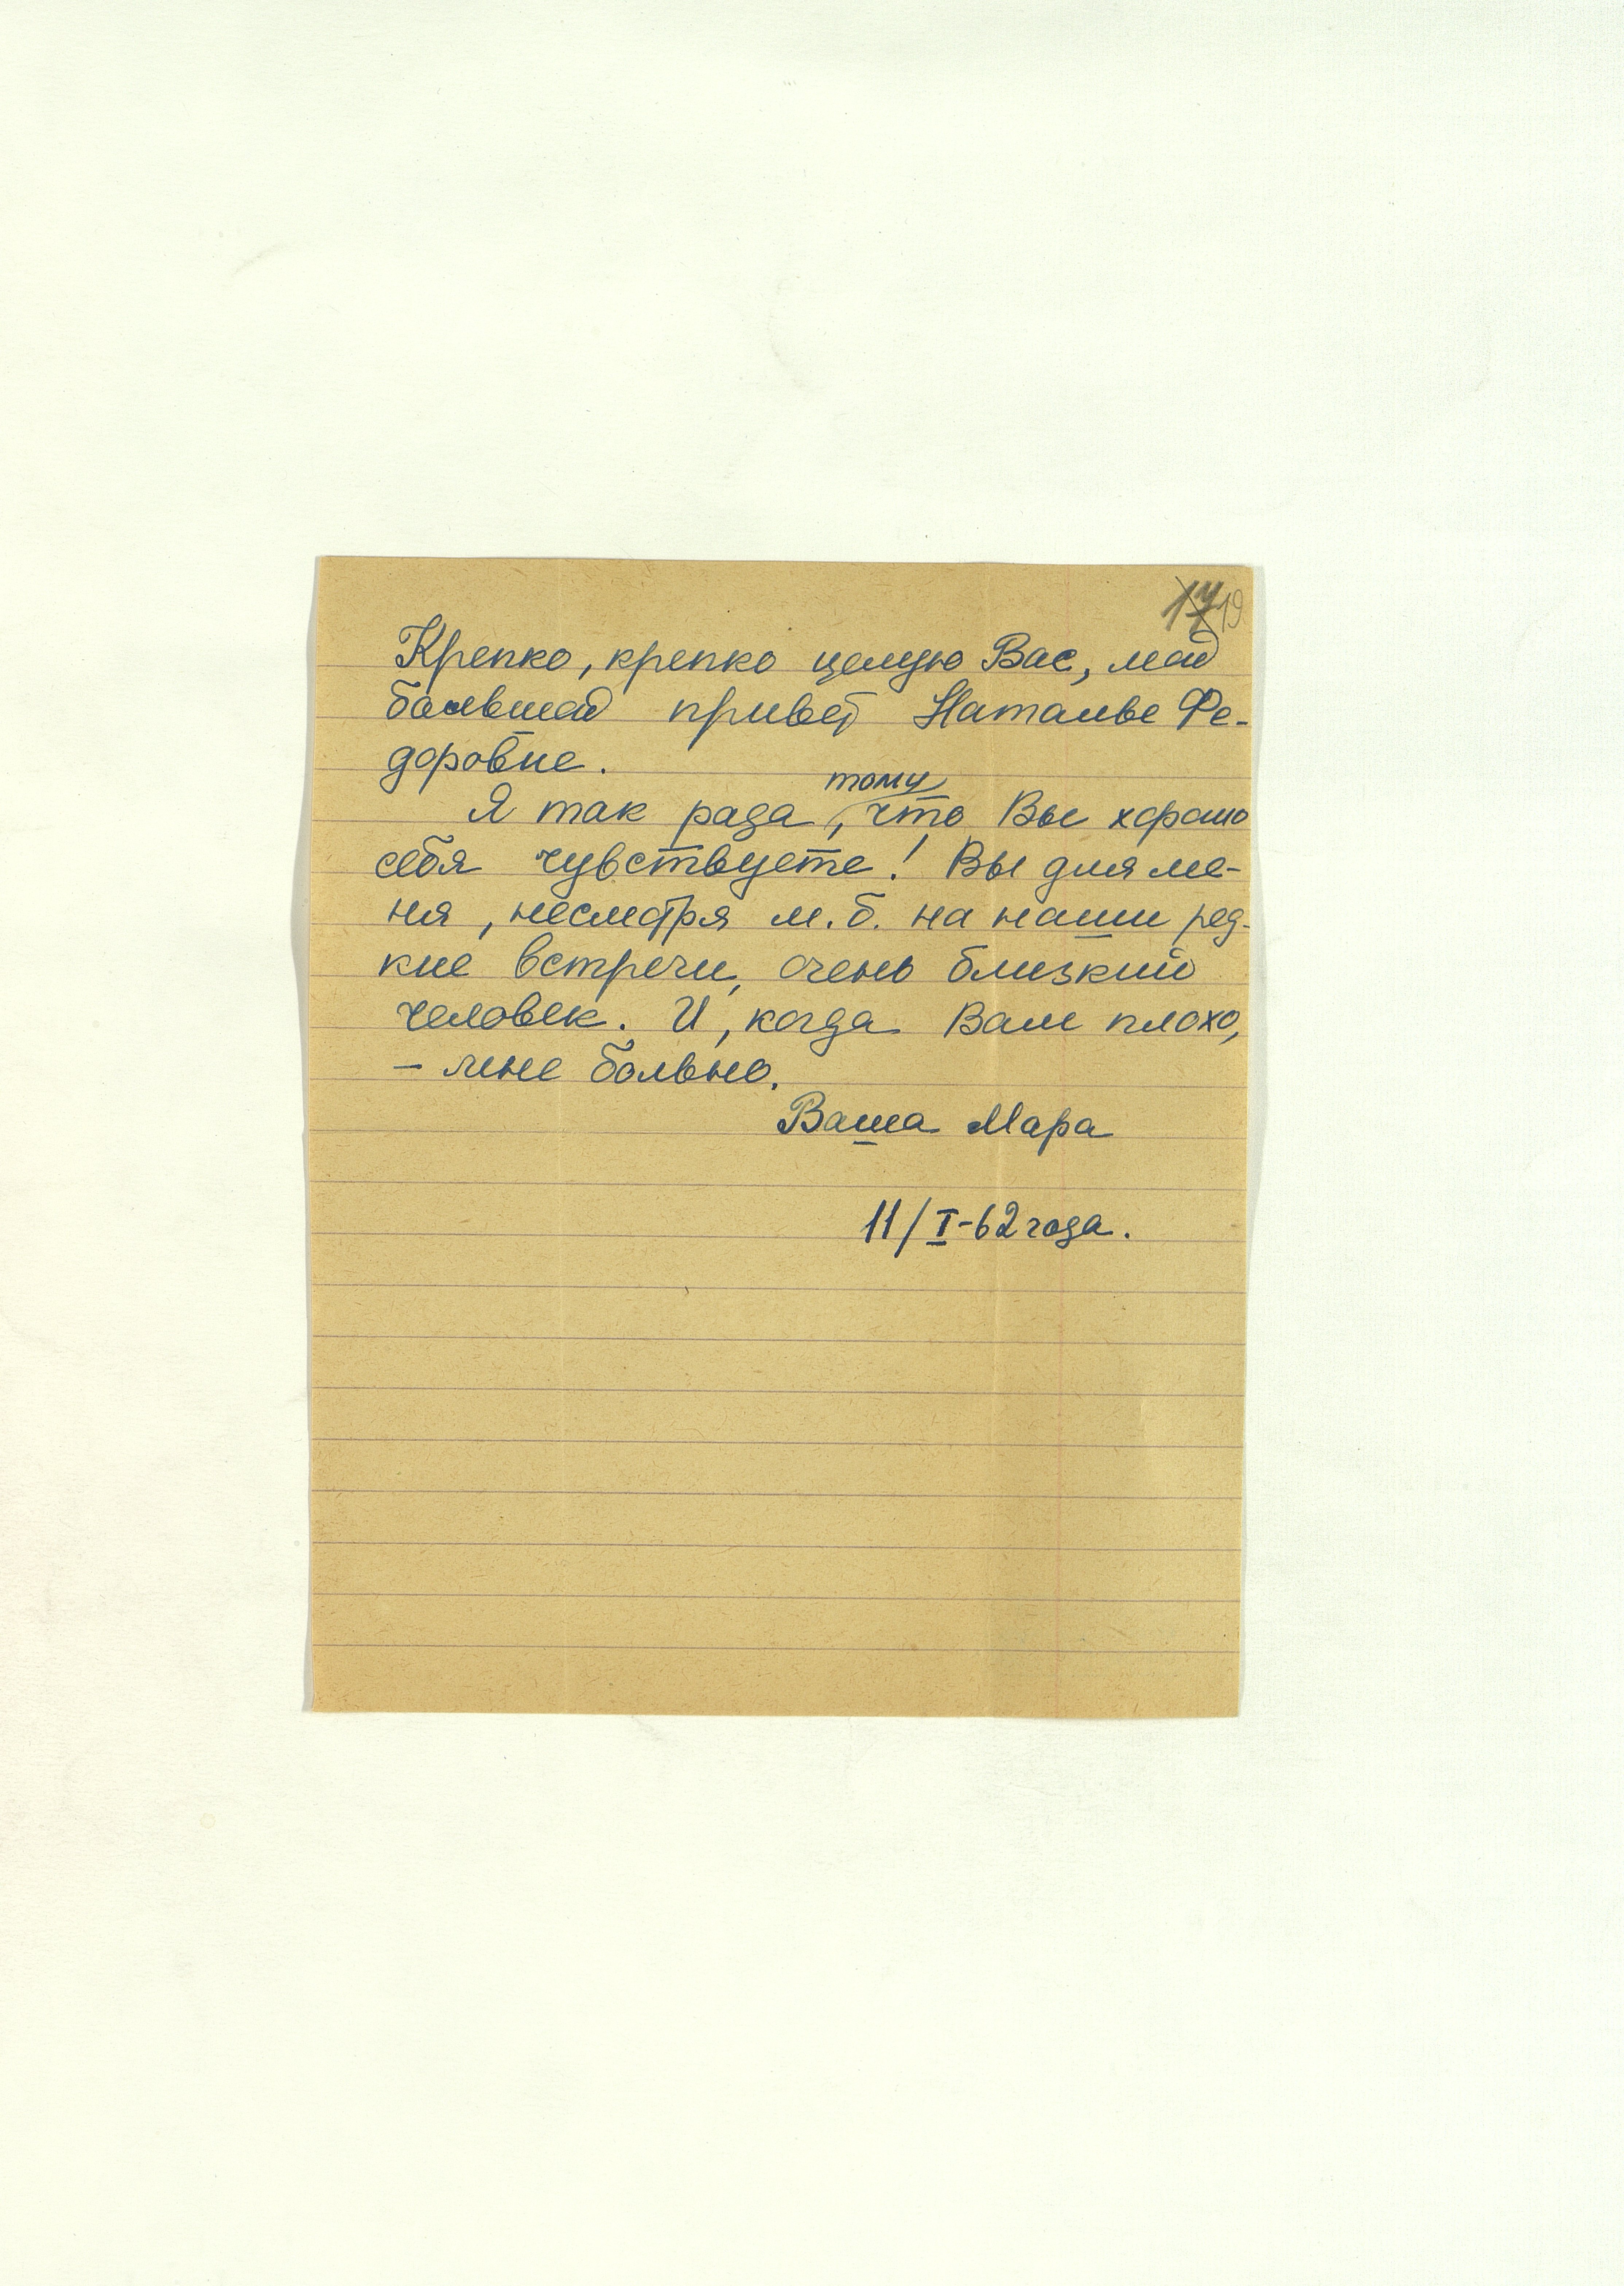 19
Крепко, крепко целую Вас, мой
большой привет Наталье Фе-
доровне.
тому
Я так рада, что Вы хорошо
себя чувствуете! Вы для ме-
ня, несмотря м.б. на наши ред-
кие встречи, очень близкий
человек. И, когда Вам плохо,
– мне больно.
Ваша Мара
11/I-62 года.